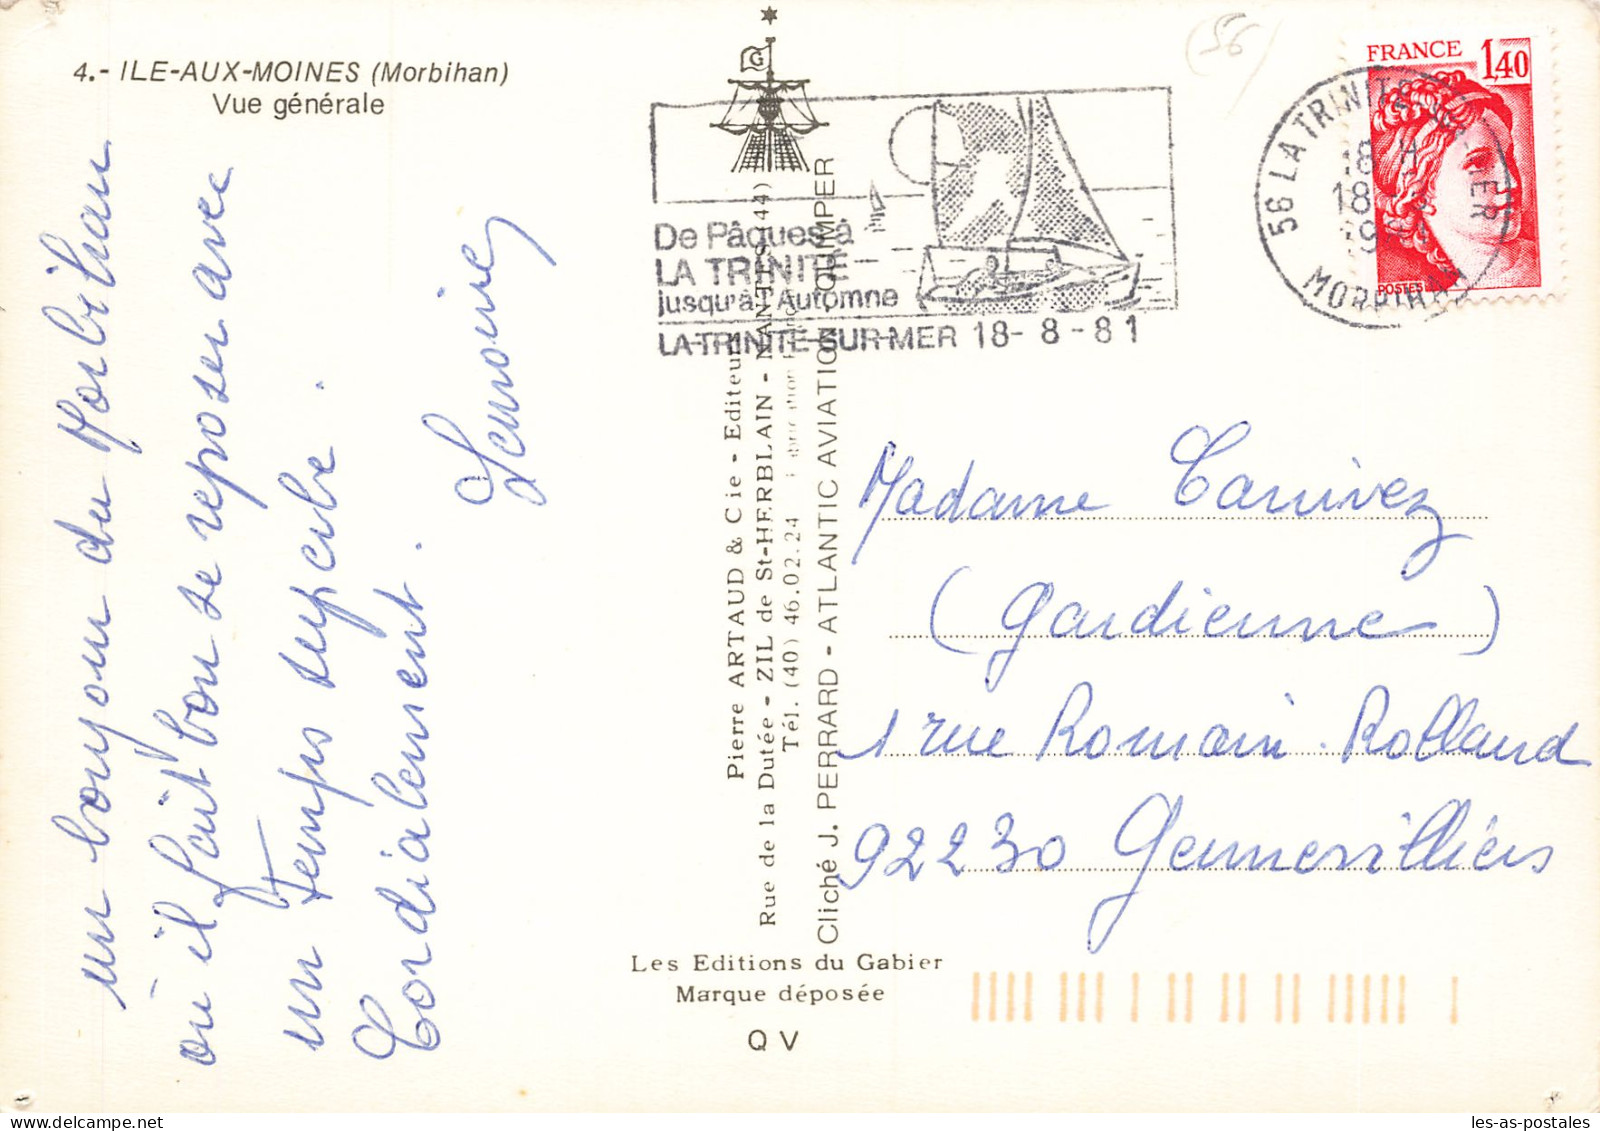 4.- ILE-AUX-MOINES (Morbihan)
Vue générale
un bonjour du Morbihan
où il fait bon se reposer avec
un temps superbe.
Cordialement.
Lemoine
G
Pierre ARTAUD & Cie - Editeur
Rue de la Dutée - ZIL de St-HERBLAIN - NANTES (44)
Tél. (40) 46.02.24
Cliché J. PERRARD - ATLANTIC AVIATION - QUIMPER
Les Editions du Gabier
Marque déposée
Q V
De Pâques à
LA TRINITÉ
jusqu'à l'Automne
LA TRINITÉ-SUR-MER 18-8-81
(56)
FRANCE 1,40
POSTES
56 LA TRINITE S MER
18 H
18
19
MORBIHAN
Madame Canivez
(gardienne)
1 rue Romain Rolland
92230 Gennevilliers
les-as-postales